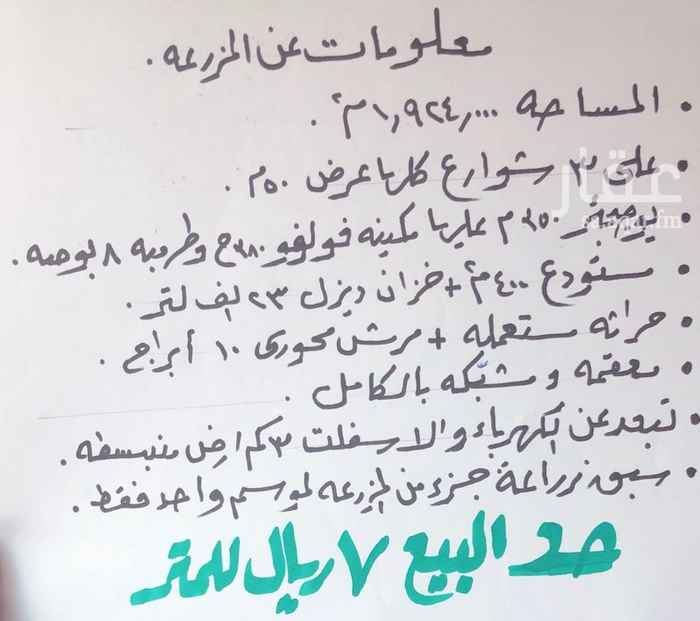 معلومات عن المزرعه .
• المساحه ١,٩٢٤,٠٠٠م٢ .
• على ٣ شوارع كلها عرض ٥٠م .
• يوجد بئر ٣٥٠م عليها مكينه فولفو ٣٨٠ح وطرمبه ٨ بوصه .
• مستودع ٤٠٠م٢ + خزان ديزل ٢٣ الف لتر .
• حراثه مستعمله + مرش محوري ١٠ أبراج .
• معقمه و مشبّكه بالكامل .
• تبعد عن الكهرباء والاسفلت ٣كم ارض منبسطه .
• سبق زراعة جزء من المزرعه لموسم واحد فقط .
حد البيع ٧ ريال للمتر
عقار
sa.aqar.fm